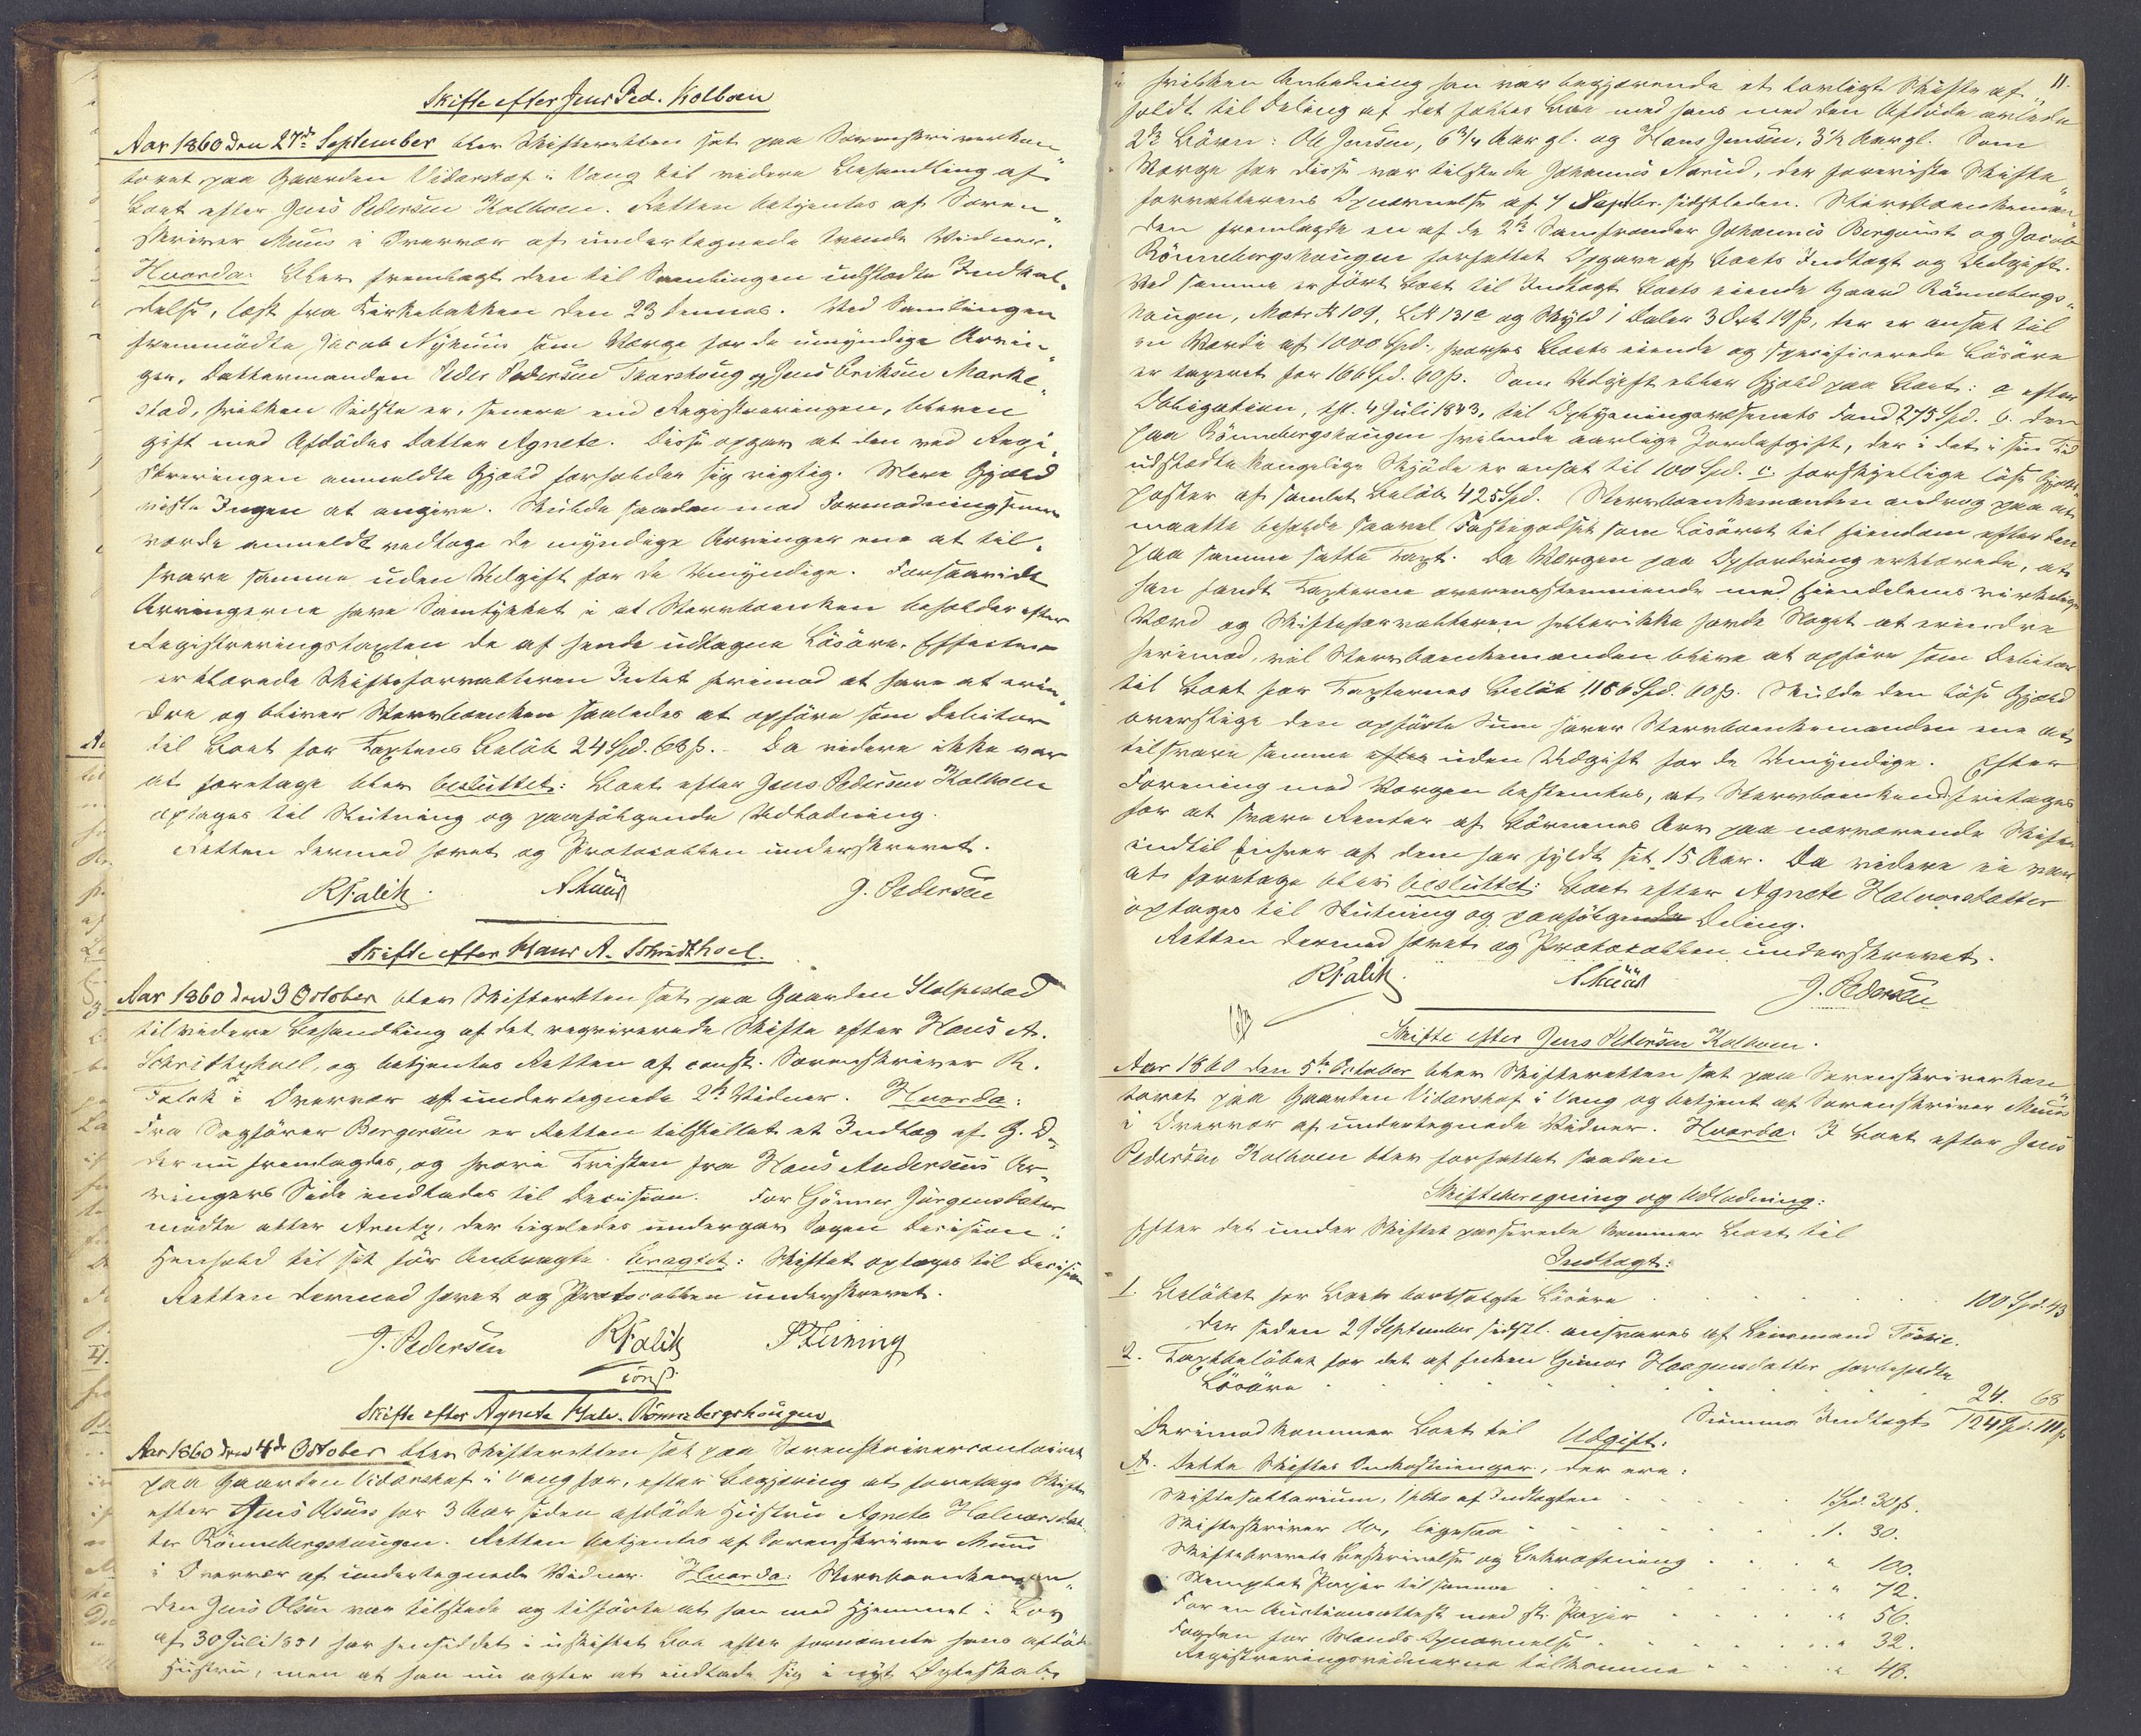 Skifte efter Jens Ped. Kolboen
Aar 1860 den 27de September blev Skifteretten sat paa Sorenskriverkon-
toret paa Gaarden Vidarshof i Vang til videre Behandling af
Boet efter Jens Pedersen Kolboen. Retten betjentes af Soren-
skriver Muus i Overvær af undertegnede tvende Vidner.
Hvorda: Blev fremlagt den til Samlingen udstædte Indkal-
delse, læst fra Kirkebakken den 23 dennes. Ved Samlingen
fremmødte Jacob Nyhuus som Værge for de umyndige Arvin-
ger, Dattermanden Peder Pedersen Torshoug og Jens Eriksen Marke-
stad, hvilken Sidste er, senere end Registreringen, bleven
gift med Afdødes Datter Agnete. Disse opgav at den ved Regi-
streringen anmeldte Gjæld forholder sig rigtig. Mere Gjæld
vidste Ingen at angive. Skulde saadan mod Formodning
vorde anmeldt vedtage de myndige Arvinger ene at til-
svare samme uden Udgift for de Umyndige. Forsaavidt
Arvingerne have Samtykket i at Stervboenken beholder efter
Registreringstaxten de af hende udtagne Løsøre-Effecter
erklærede Skifteforvalteren Intet herimod at have at erin-
dre og bliver Stervboenken saaledes at opføre som Debitor
til Boet for Taxtens Beløb 24 Spd. 68 ß. Da videre ikke var
at foretage blev besluttet: Boet efter Jens Pedersen Kolboen
optages til Slutning og paafølgende Udlodning.
Retten dermed hævet og Protocollen underskrevet.
RFalck. AMuus J. Pedersen
Skifte efter Hans A. Schridthoel.
Aar 1860 den 3 October blev Skifteretten sat paa Gaarden Stolpestad
til videre Behandling af det reqvirerede Skifte efter Hans A.
og betjentes Retten af const. Sorenskriver R.
Falck i Overvær af undertegnede 2de Vidner. Hvorda:
Fra Sagfører Bergersen er Retten tilstillet et Indlæg af G. D.
der nu fremlagdes, og hvori Tvisten fra Hans Andersens Ar-
vingers Side indlades til Decision. For Gunner Jørgensdatter
mødte atter Arntz, der ligeledes undergav Sagen Decision i
Henhold til sit før Anbragte. Eragtet: Skiftet optages til Decision
Retten dermed hævet og Protocollen underskrevet.
J. Pedersen RFalck
const.
Skifte efter Agnete Halv. Rønnebergshougen
Aar 1860 den 4de October blev Skifteretten sat paa Sorenskrivercontoiret
paa Gaarden Vidarshof i Vang for, efter Begjæring at foretage Skifte
efter Jens Olsens for 3 Aar siden afdøde Hustru Agnete Halvorsdat-
ter Rønnebergshougen. Retten betjentes af Sorenskriver Muus
i Overvær af undertegnede Vidner. Hvorda: Stervboenkeman-
den Jens Olsen var tilstede og tilførte at han med Hjemmel i Lov
af 30 Juli 1851 har hensiddet i uskiftet Boe efter fornævnte hans afdøde
Hustru, men at han nu agter at indlade sig i nyt Ægteskab,
11.
i hvilken Anledning han var begjærende et lovligt Skifte af-
holdt til Deling af det fælles Boe med hans med den Afdøde avlede
2de Børn: Ole Jensen, 6 3/4 Aar gl. og Hans Jensen, 3 1/2 Aar gl. Som
Værge for disse var tilstede Johannes Narud, der foreviste Skifte-
forvalterens Opnævnelse af 7 Septbr. sidstleden. Stervboenkeman-
den fremlagde en af de 2de Samfrænder Johannes Bergqvist og Jacob
Rønnebergshougen forfattet Opgave af Boets Indtægt og Udgift.
Ved samme er ført Boet til Indtægt Boets eiende Gaard Rønnebergs-
hougen, Matr. № 109, L№ 131a og Skyld 1 Daler 3 Ort 19 ß, der er ansat til
en Værdi af 1000 Spd. Boets eiende og specificerede Løsøre
er taxeret for 166 Spd. 60 ß. Som Udgift eller Gjæld paa Boet: a efter
Obligation, tgl. 4 Juli 1843, til Oplysningsvæsenets Fond 275 Spd. b. den
paa Rønnebergshougen hvilende aarlige Jordafgift, der i det i sin Tid
udstædte kongelige Skjøde er ansat til 100 Spd. c. forskjellige løse Gjælds-
poster af samlet Beløb 425 Spd. Stervboenkemanden androg paa at
maatte beholde saavel Fastegodset som Løsøret til Eiendom efter den
paa samme satte Taxt. Da Værgen paa Opfordring erklærede, at
han fandt Taxterne overensstemmende med Eiendelens virkelige
Værd og Skifteforvalteren hellerikke havde Noget at erindre
herimod, vil Stervboenkemanden blive at opføre som Debitor
til Boet for Taxternes Beløb 1166 Spd. 60 ß. Skulde den løse Gjæld
overstige den opførte Sum haver Stervboenkemanden ene at
tilsvare samme efter uden Udgift for de Umyndige. Efter
Forening med Værgen bestemtes, at Stervboenkem. fritages
for at svare Renter af Børnenes Arv paa nærværende Skifte
indtil Enhver af dem har fyldt sit 15 Aar. Da videre ei var
at foretage blev besluttet: Boet efter Agnete Halvorsdatter
optages til Slutning og paafølgende Deling.
Retten dermed hævet og Protocollen underskrevet.
RFalck. AMuus J. Pedersen
Skifte efter Jens Pedersen Kolboen.
Aar 1860 den 5te October blev Skifteretten sat paa Sorenskriverkon-
toret paa Gaarden Vidarshof i Vang og betjent af Sorenskriver Muus
i Overvær af undertegnede Vidner. Hvorda: I Boet efter Jens
Pedersen Kolboen blev forfattet saadan
Skifteberegning og Udlodning:
Efter det under Skiftet passerede kommer Boet til
Indtægt:
1. Beløbet for Boets bortsolgte Løsøre 100 Spd. 43
der siden 29 September sidstl. ansvares af Lensmand
2. Taxtbeløbet for det af Enken Gunor Haagensdatter forbeholdte
Løsøre 24. 68
Summa Indtægt 124 Spd. 111 ß
Derimod kommer Boet til Udgift:
A. dette Skiftes Omkostninger, der ere:
Skiftesallarium, 1 pCto af Indtægten 1 Spd. 30 ß.
Skifteskriver do, ligesaa 1. 30.
Skiftebrevets Beskrivelse og Bekræftning " 100.
Stemplet Papir til samme " 72.
For en Auctionsattest med st. Papir " 56.
Fogden for Mænds Opnævnelse " 32.
Registreringsvidnerne tilkomme " 48.